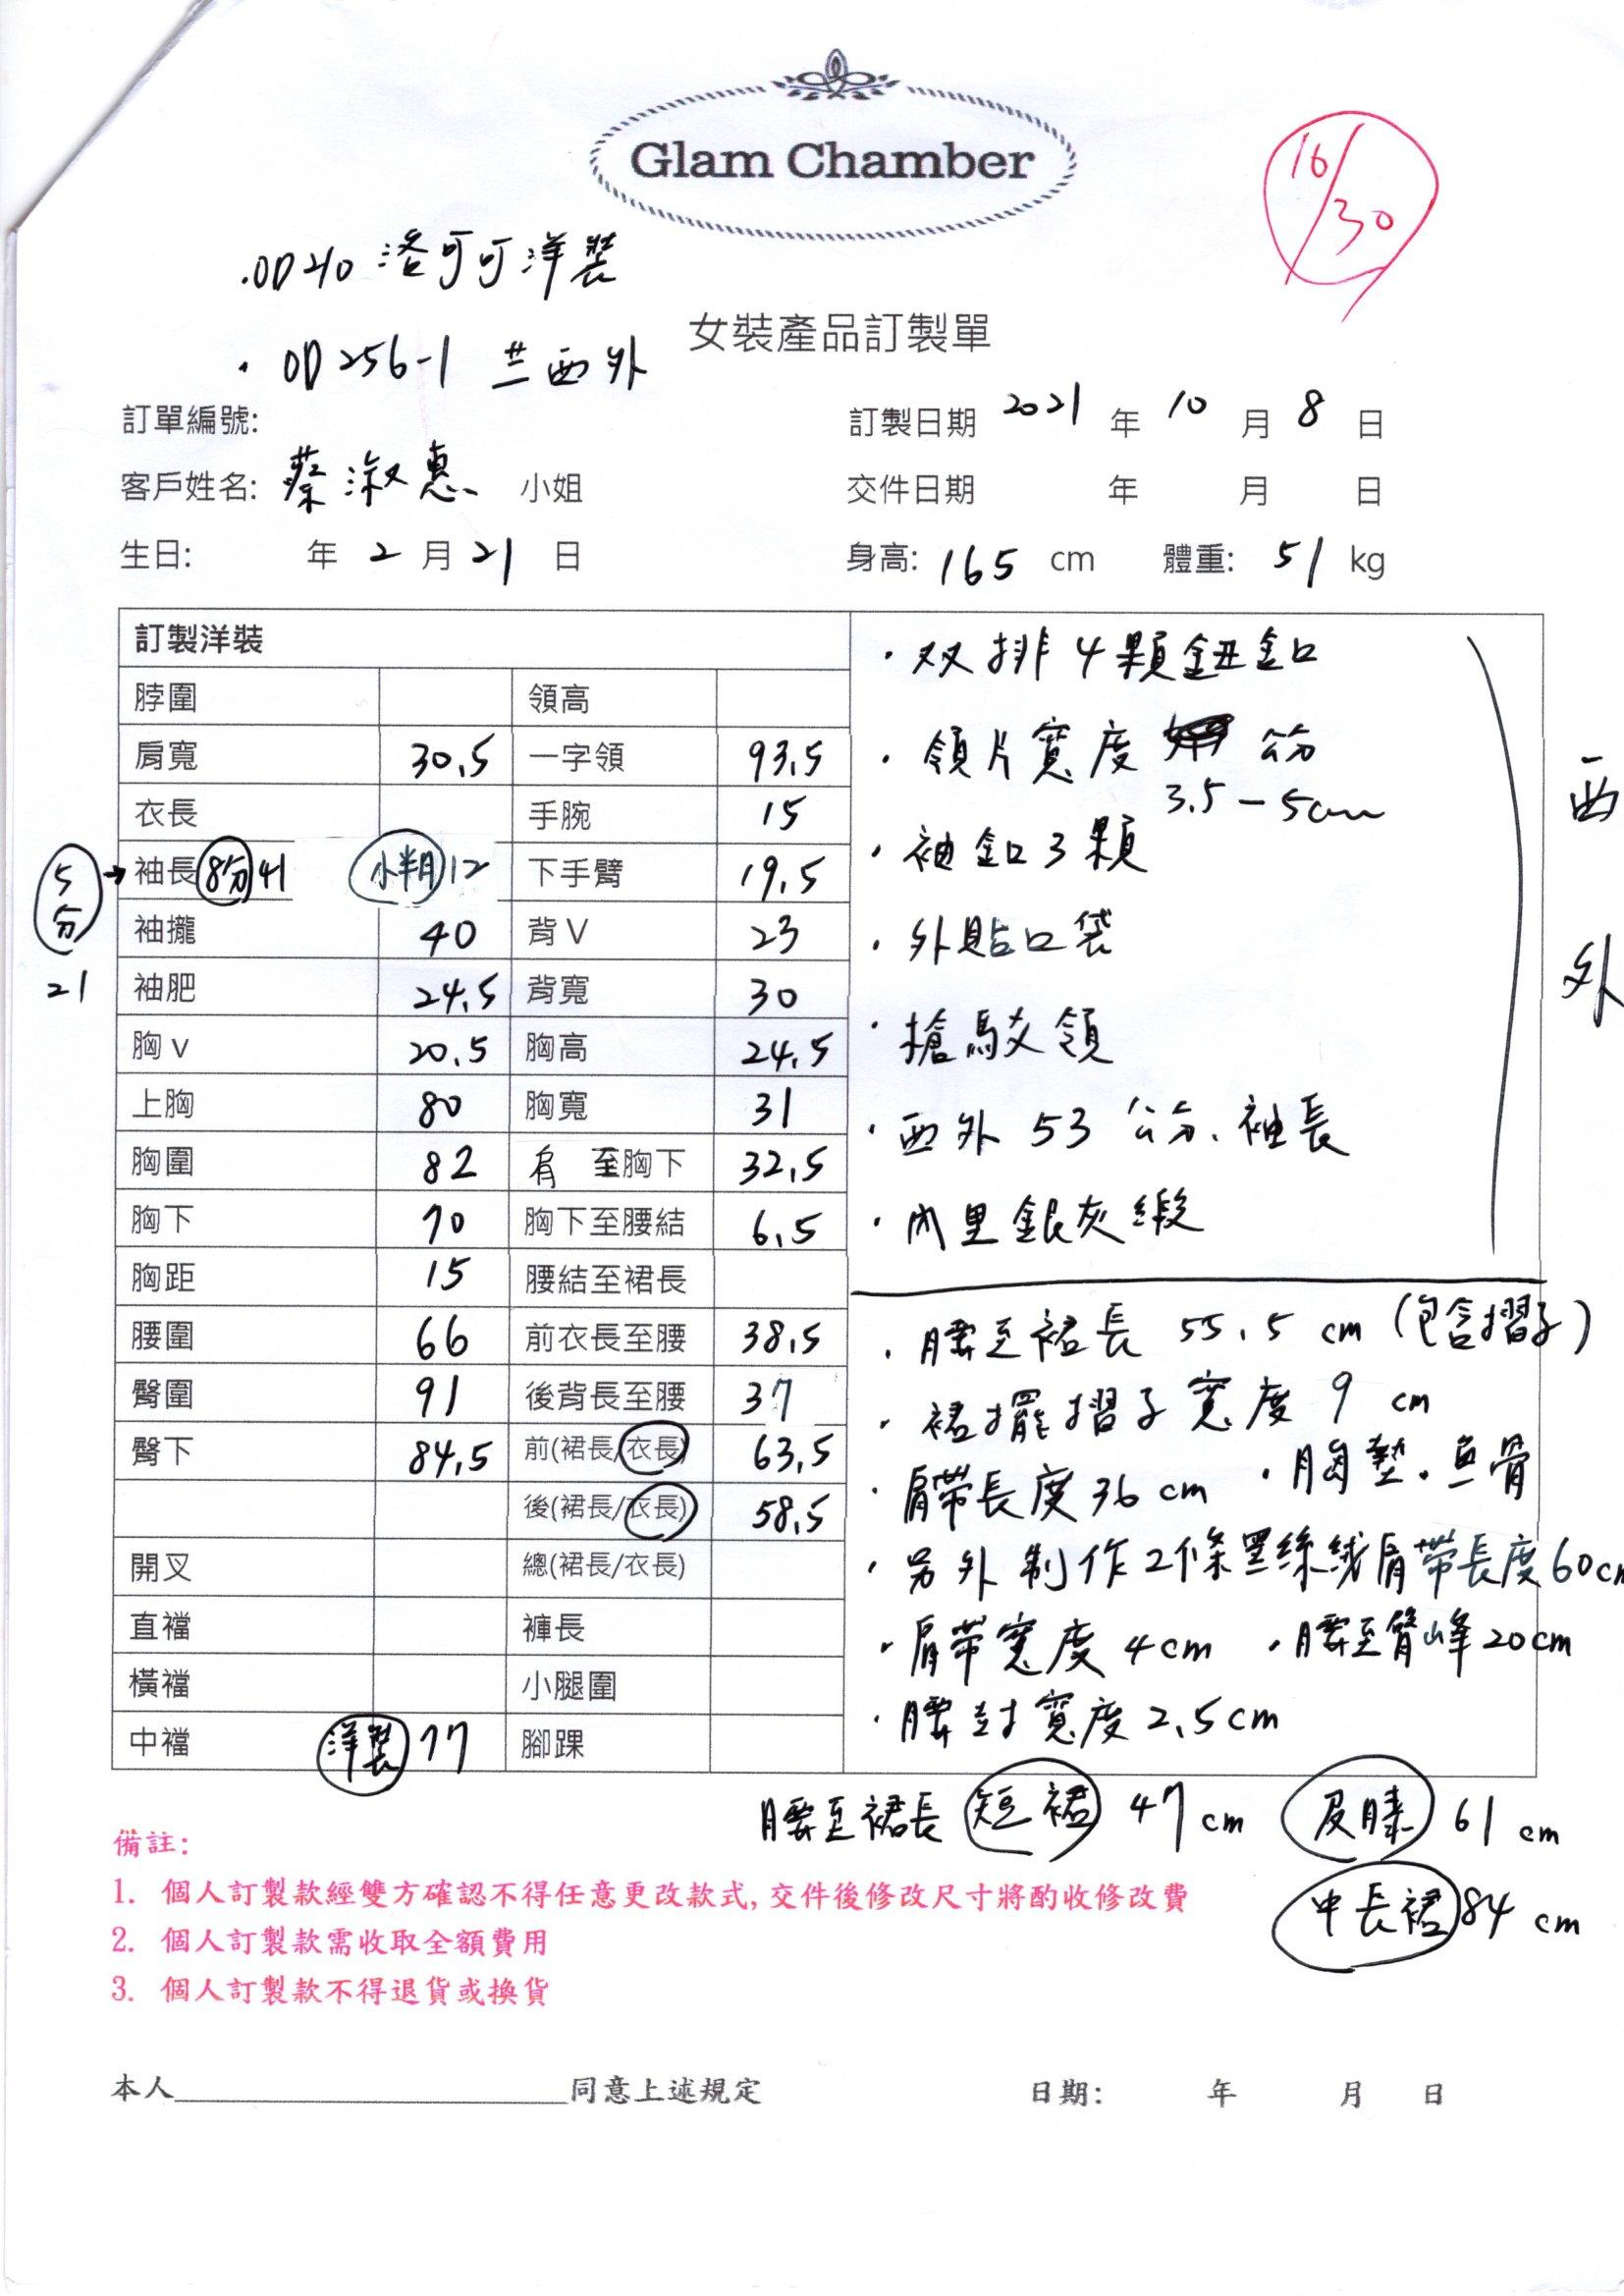 Glam Chamber
16/30
.OD210 洛可可洋裝
女裝產品訂製單
. OD256-1 兰西外
訂單編號:
訂製日期 2021 年 10 月 8 日
客戶姓名: 蔡淑惠 小姐
交件日期 年 月 日
生日: 年 2 月 21 日
身高: 165 cm 體重: 51 kg
訂製洋裝
脖圍 領高
肩寬 30.5 一字領 93.5
衣長 手腕 15
5分 21 → 袖長 8分 41 小半月 12 下手臂 19.5
袖攏 40 背V 23
袖肥 24.5 背寬 30
胸v 20.5 胸高 24.5
上胸 80 胸寬 31
胸圍 82 肩 至胸下 32.5
胸下 70 胸下至腰結 6.5
胸距 15 腰結至裙長
腰圍 66 前衣長至腰 38.5
臀圍 91 後背長至腰 37
臀下 84.5 前(裙長/衣長) 63.5
後(裙長/衣長) 58.5
開叉 總(裙長/衣長)
直襠 褲長
橫襠 小腿圍
中襠 洋裝 77 腳踝
・双排4顆鈕釦
・領片寬度 公分
3.5-5cm
・袖釦3顆
・外貼口袋
・搶駁領
・西外 53 公分、袖長
・內里銀灰緞
西外
・腰至裙長 55.5 cm (包含摺子)
・裙擺摺子寬度 9 cm
・肩帶長度 36 cm ・胸墊．魚骨
・另外制作2條黑絲絨肩帶長度60cm
・肩带寬度 4cm ・腰至臀峰20cm
・腰封寬度2.5cm
腰至裙長 短裙 47 cm 及膝 61 cm
中長裙 84 cm
備註:
1. 個人訂製款經雙方確認不得任意更改款式,交件後修改尺寸將酌收修改費
2. 個人訂製款需收取全額費用
3. 個人訂製款不得退貨或換貨
本人 同意上述規定 日期: 年 月 日